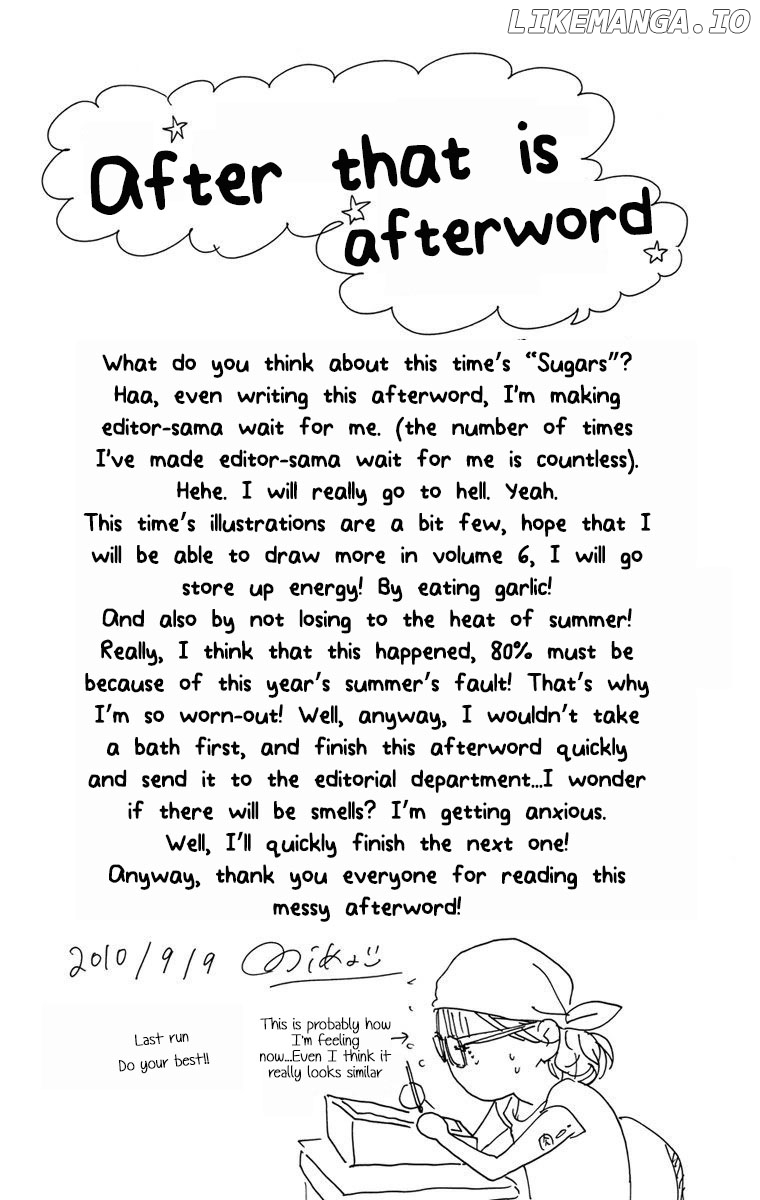 LIKEMANGA.IO
After that is
afterword
What do you think about this time's "Sugars"?
Haa, even writing this afterword, I'm making
editor-sama wait for me. (the number of times
I've made editor-sama wait for me is countless).
Hehe. I will really go to hell. Yeah.
This time's illustrations are a bit few, hope that I
will be able to draw more in volume 6, I will go
store up energy! By eating garlic!
And also by not losing to the heat of summer!
Really, I think that this happened, 80% must be
because of this year's summer's fault! That's why
I'm so worn-out! Well, anyway, I wouldn't take
a bath first, and finish this afterword quickly
and send it to the editorial department...I wonder
if there will be smells? I'm getting anxious.
Well, I'll quickly finish the next one!
Anyway, thank you everyone for reading this
messy afterword!
2010/9/9
Last run
Do your best!!
This is probably how
I'm feeling
now...Even I think it
really looks similar